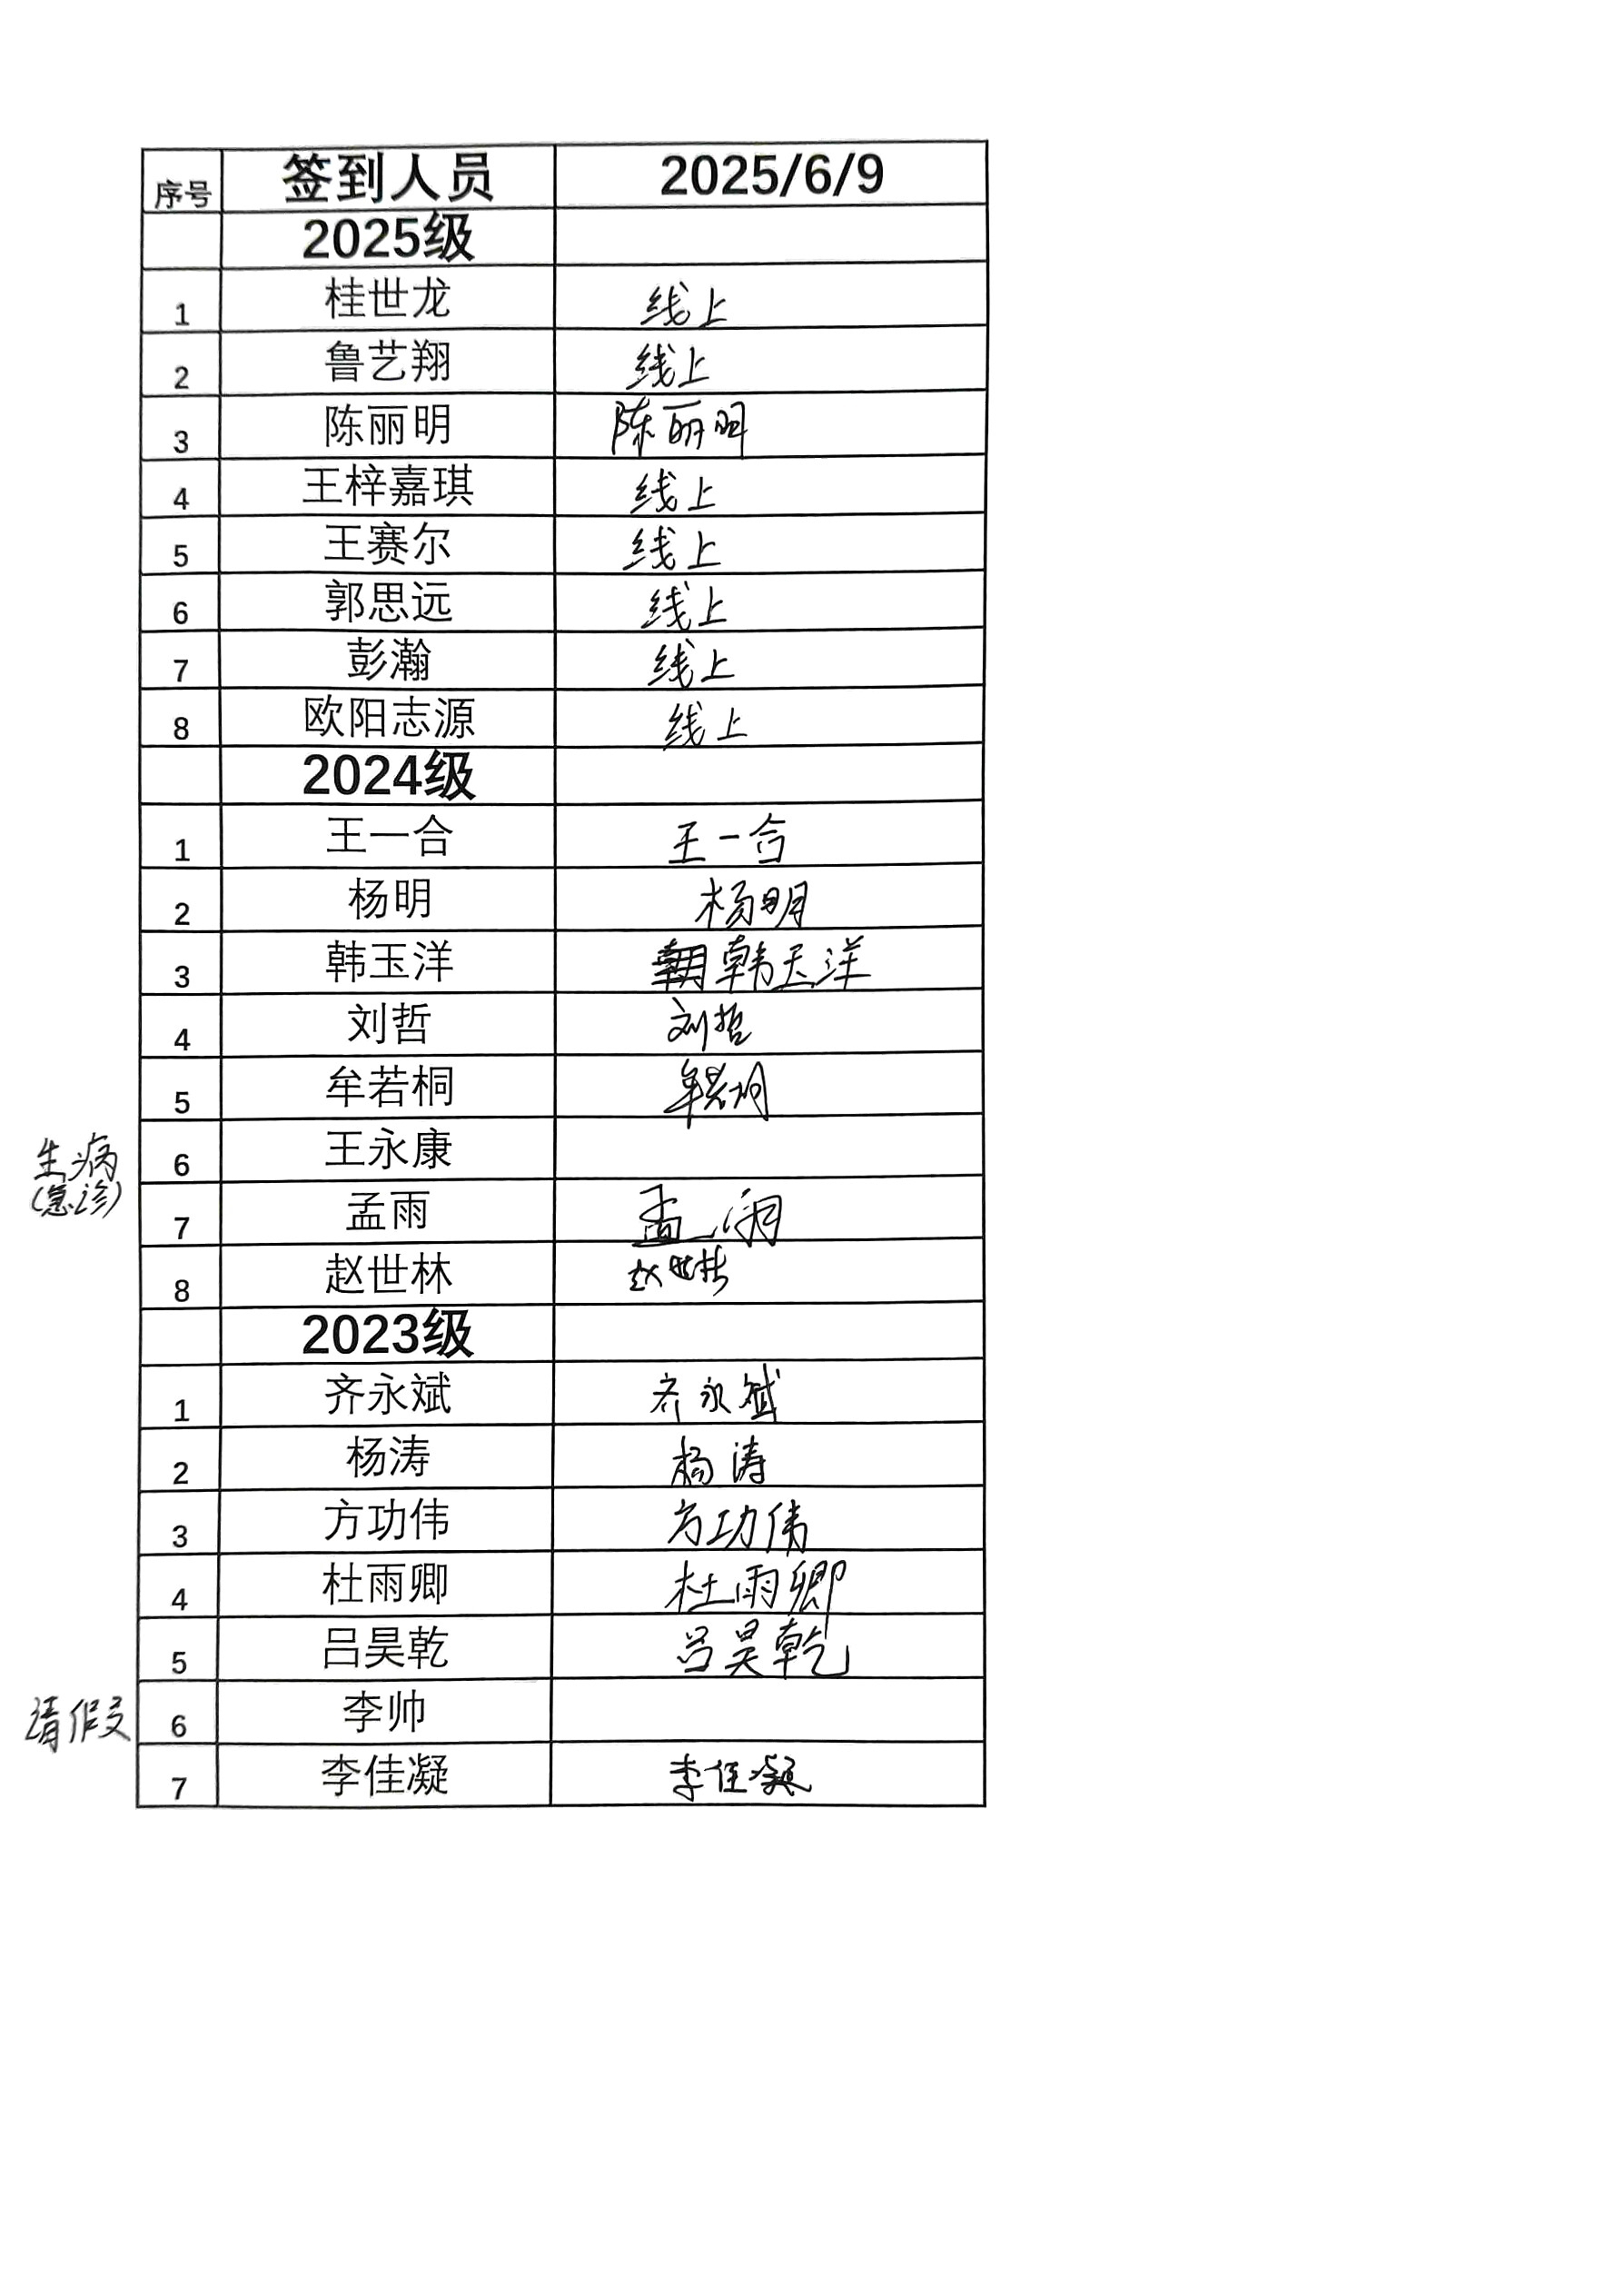 序号 签到人员 2025/6/9
2025级
1 桂世龙 线上
2 鲁艺翔 线上
3 陈丽明 陈丽明
4 王梓嘉琪 线上
5 王赛尔 线上
6 郭思远 线上
7 彭瀚 线上
8 欧阳志源 线上
2024级
1 王一合 王一合
2 杨明 杨明
3 韩玉洋 韩玉洋
4 刘哲 刘哲
5 牟若桐 牟若桐
生病 6 王永康
(急诊)
7 孟雨 孟雨
8 赵世林 赵世林
2023级
1 齐永斌 齐永斌
2 杨涛 杨涛
3 方功伟 方功伟
4 杜雨卿 杜雨卿
5 吕昊乾 吕昊乾
请假 6 李帅
7 李佳凝 李佳凝